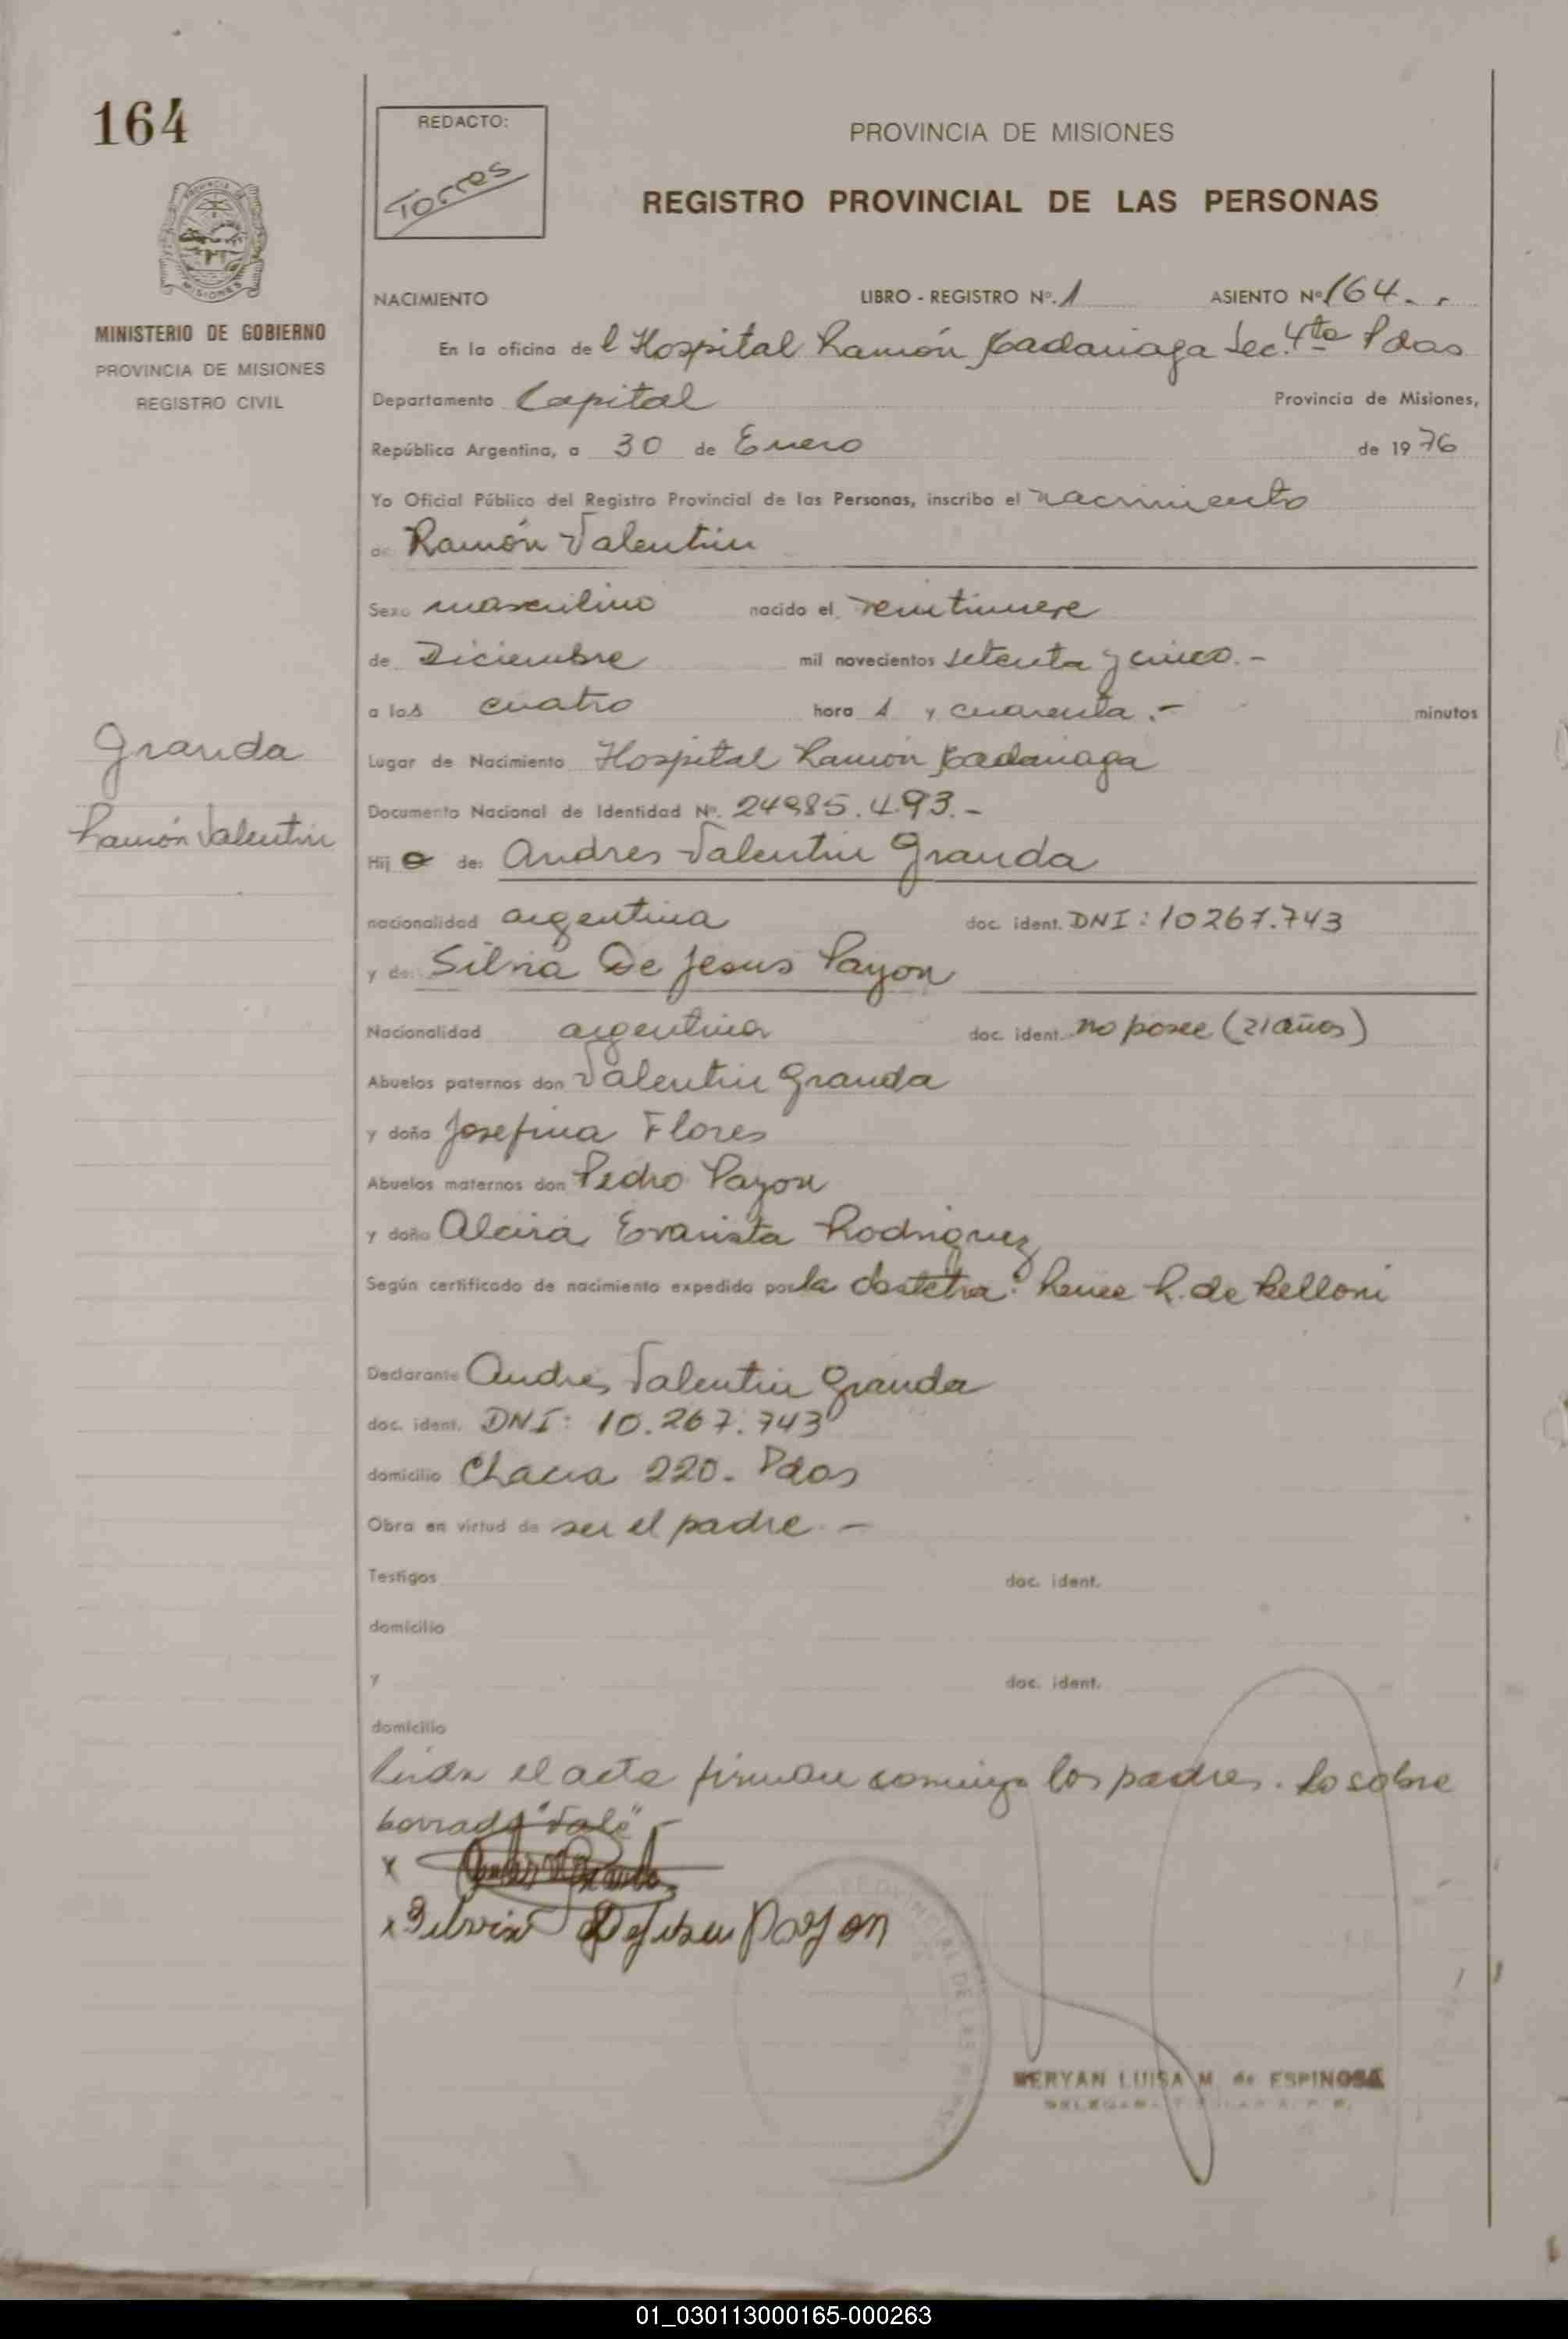 164
REDACTO:
Torres
PROVINCIA DE MISIONES
REGISTRO PROVINCIAL DE LAS PERSONAS
MISIONES
MINISTERIO DE GOBIERNO
PROVINCIA DE MISIONES
REGISTRO CIVIL
NACIMIENTO LIBRO - REGISTRO Nº. 1 ASIENTO Nº 164. .
En la oficina de l Hospital Ramón Madariaga Sec. 4ta Pdas
Departamento Capital Provincia de Misiones,
República Argentina, a 30 de Enero de 19 76
Yo Oficial Público del Registro Provincial de las Personas, inscribo el nacimiento
de Ramón Valentin
Sexo masculino nacido el veintinueve
de Diciembre mil novecientos setenta y cinco.-
a las cuatro hora s y cuarenta.- minutos
Granda
Ramón Valentin
Lugar de Nacimiento Hospital Ramón Madariaga
Documento Nacional de Identidad Nº. 24985.493.-
Hij o de: Andres Valentin Granda
nacionalidad argentina doc. ident. DNI: 10267.743
y de: Silvia De Jesus Payon
Nacionalidad argentina doc. ident. no posee (21 años)
Abuelos paternos don Valentin Granda
y doña Josefina Flores
Abuelos maternos don Pedro Payon
y doña Alcira Evarista Rodriguez
Según certificado de nacimiento expedido por la obstetra: Renee R. de Belloni
Declarante Andrés Valentin Granda
doc. ident. DNI: 10.267.743
domicilio Chacra 220. Pdas
Obra en virtud de ser el padre.-
Testigos doc. ident.
domicilio
y doc. ident.
domicilio
Leida el acta firman conmigo los padres. Lo sobre
borrado "Vale"-
x
x Silvia Payon
PROVINCIAL DE LAS PERSO
MERYAN LUISA M. de ESPINOSA
01_030113000165-000263